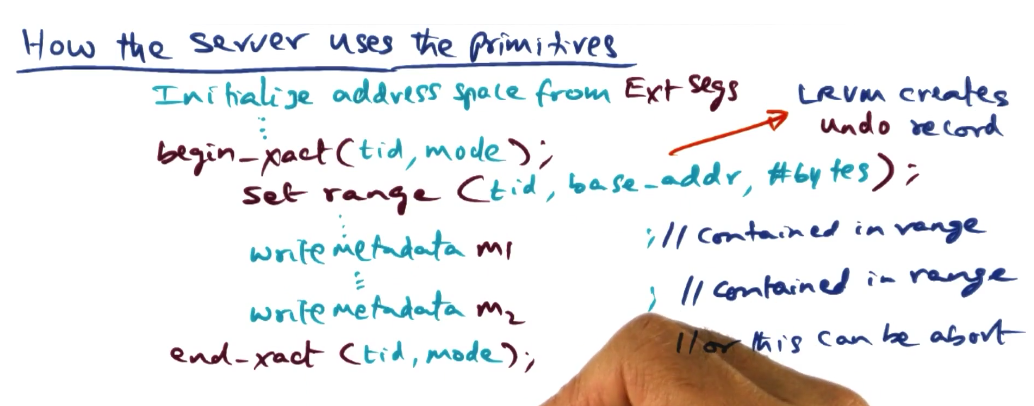 How the server uses the primitives
Initialize address space from Ext segs
LRVM creates
undo record
begin_xact(tid, mode);
set range (tid, base_addr, #bytes);
write metadata m1 ; // contained in range
write metadata m2 ; // contained in range
end_xact (tid, mode); // or this can be abort